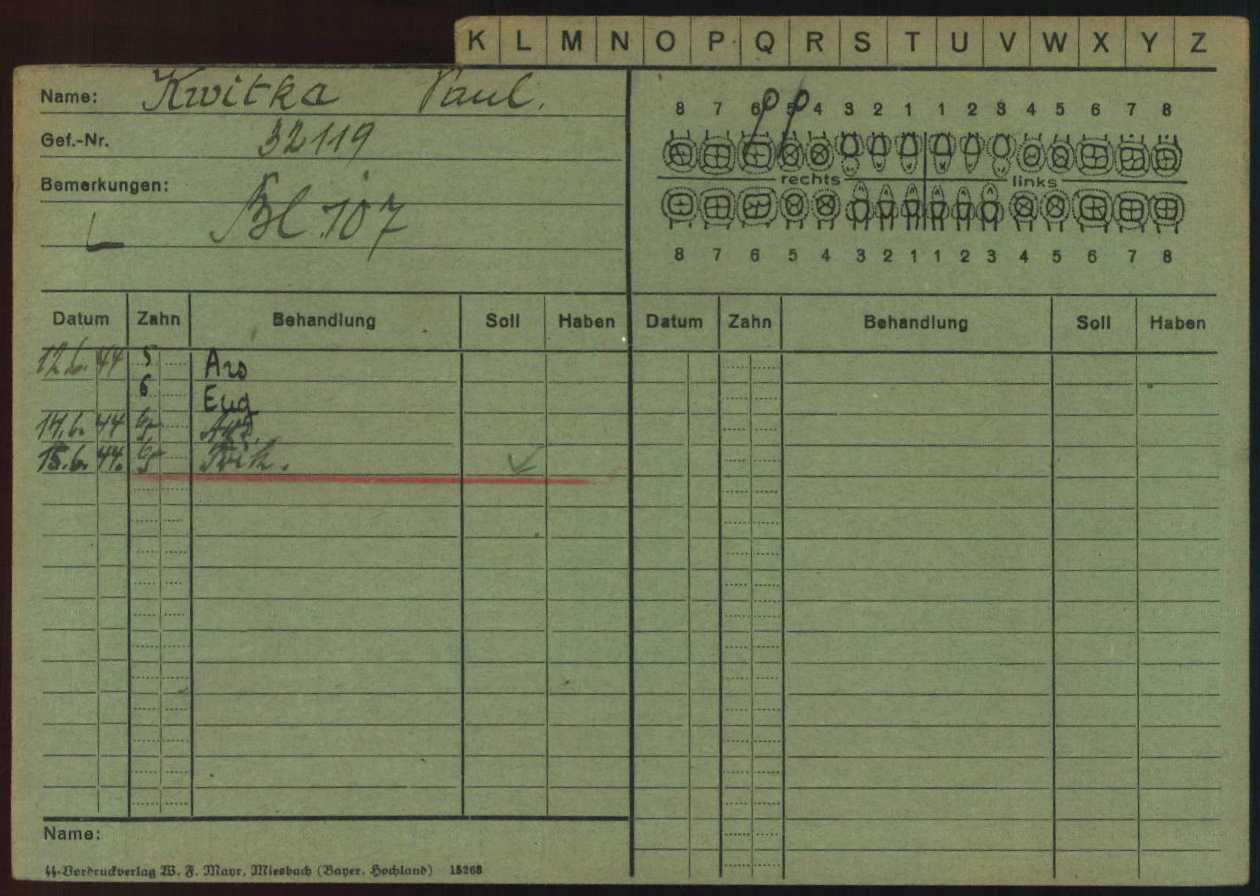 K L M N O P Q R S T U V W X Y Z
Name: Kwitka Paul.
Gef.-Nr. 32119
Bemerkungen:
Bl 107
8 7 6 5 4 3 2 1 1 2 3 4 5 6 7 8
rechts links
8 7 6 5 4 3 2 1 1 2 3 4 5 6 7 8
Datum Zahn Behandlung Soll Haben Datum Zahn Behandlung Soll Haben
12.6. 44 5
6 Eug
14.6. 44
15.6. 44.
Name:
SS-Vordruckverlag W. F. Mayr, Miesbach (Bayer. Hochland) 15268